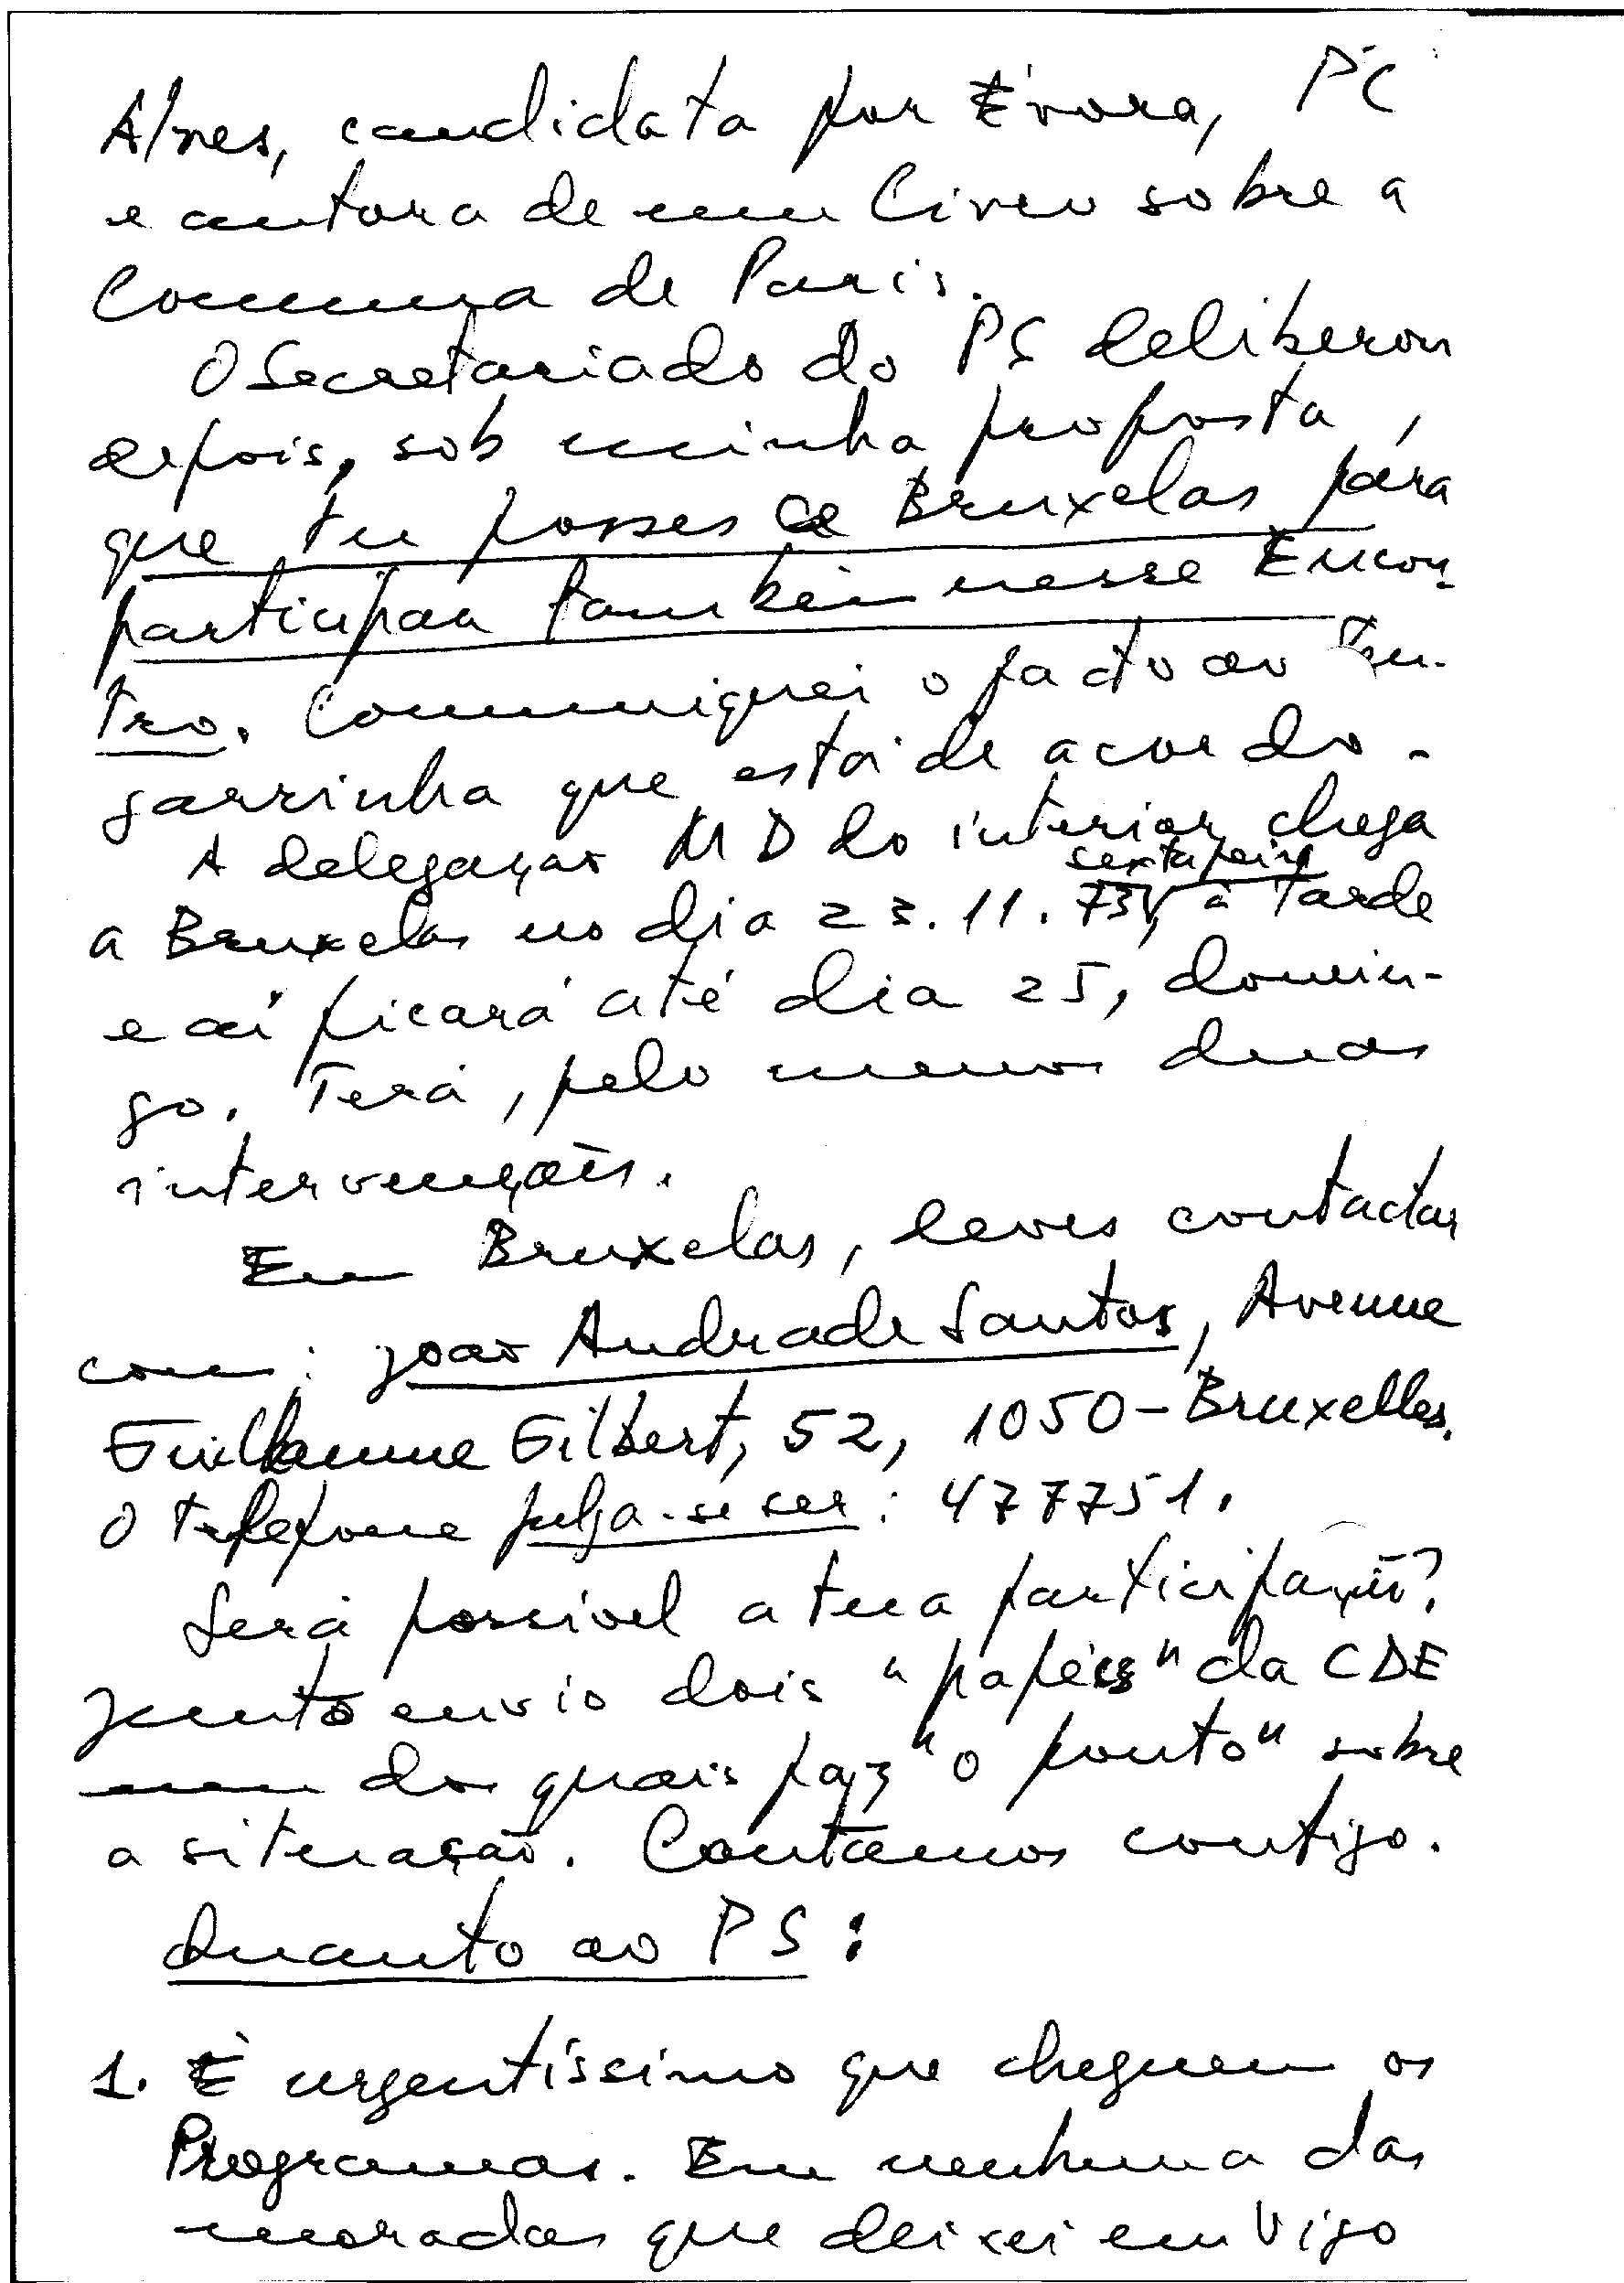 Alves, candidata por Évora, PC
e autora de um livro sobre a
Comuna de Paris.
O Secretariado do PS deliberou
depois, sob minha proposta,
que tu fosses a Bruxelas para
participar também nesse Encon-
tro. Comuniquei o facto ao Ten-
garrinha que está de acordo.
A delegação MD do interior chega
sexta feira
a Bruxelas no dia 23.11.73, à tarde
e aí ficará até dia 25, domin-
go. Terá, pelo menos duas
intervenções.
Em Bruxelas, deves contactar
com: João Andrade Santos, Avenue
Guillaume Gilbert, 52, 1050-Bruxelles.
O telefone julga-se ser: 477751.
Será possível a tua participação?
Junto envio dois "papéis" da CDE
num dos quais faz "o ponto" sobre
a situação. Contamos contigo.
Quanto ao PS:
1. É urgentíssimo que cheguem os
Programas. Em nenhuma das
moradas que deixei em Vigo